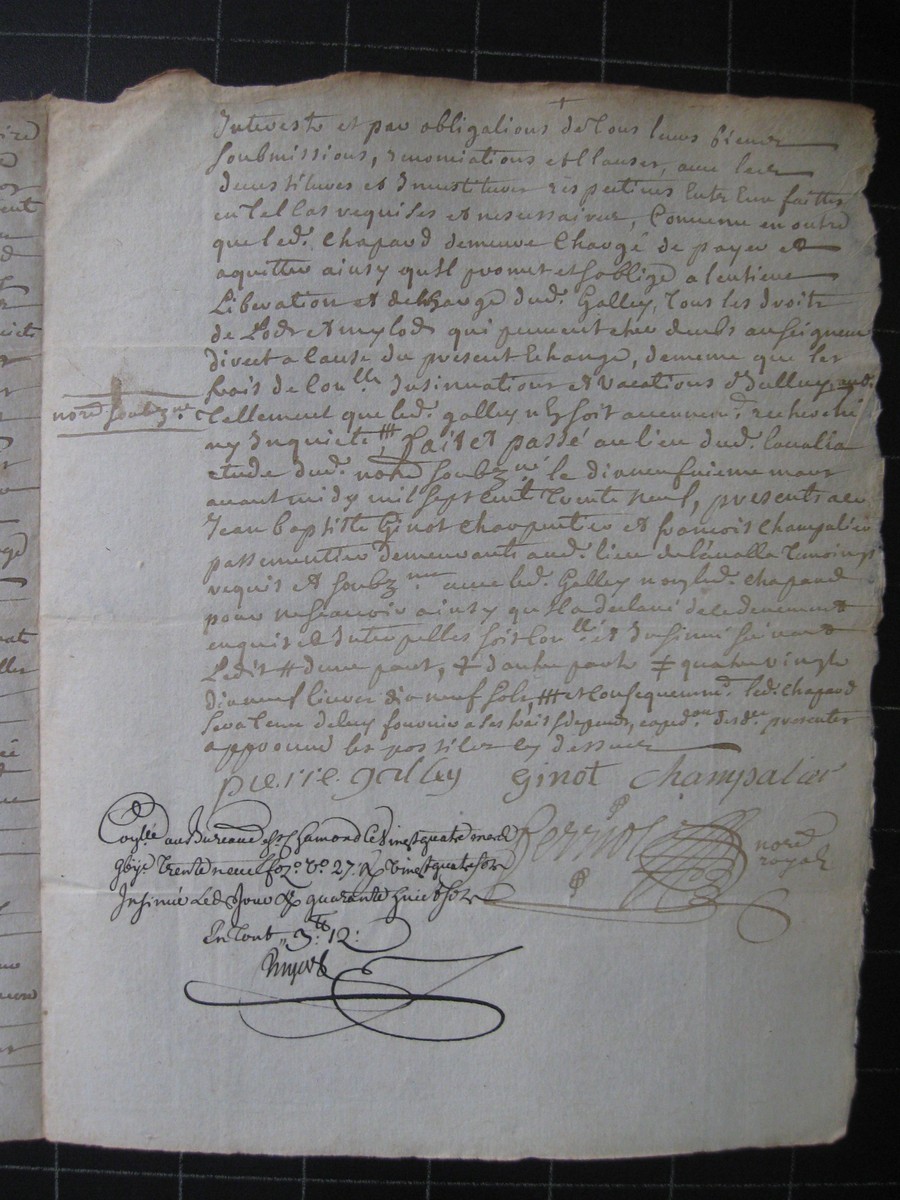 Interests et par obligations de tous leurs biens
soubmissions, renonciations et clauses, avec les
devestitures et Investitures respectives Entre Eux faittes
en tel cas requises et necessaires, Convenu en outre
que led. Chapard demeure Chargé de payer et
aquitter ainsy qu'Il promet et soblige a lentiere
Liberation et decharge dud. Galley, tous les droits
de Lods et mylods qui peuvent etre deubs au seigneur
direct a cause du present Echange, de meme que les
frais de Con.lle Insinuations et vacations
tellement que led. galley n'En soit aucunem.t recherché
ny Inquieté, ## fait et passé au lieu dud. Lavalla
etude dud. nore soubz.né le dixneufvieme mars
avant midy mil sept cent trente neuf, presents a ce
Jean baptiste Ginot charpentier et francois Champalier
passementier demeurants aud. lieu de lavalla temoings
requis et soubz.nes avec led. Galley non led. chapard
pour ne scavoir ainsy qu'Il a declaré de ce deuement
enquis et Interpellés soit Con.llé et Insinué suivant
Ledit # d'une part, ‡ d'autre part ‡ quatre vingt
dix neuf livres dix neuf sols, ### et Consequemm.t led. chapard
sera tenu de luy fournir a ses frais & depends, exped.on des.d. presentes
approuvé les postiles cy dessus
nore soubz.né
pierre galley ginot champalier
Perriol nore
royal
Con.llé au Bureau de St Chamond le vingt quatre mars
gbijc trente neuf fo. vo. 27. R vingt quatre sols
Insinué Led Jour R quarante huit sols
En tout, 3tt 12s